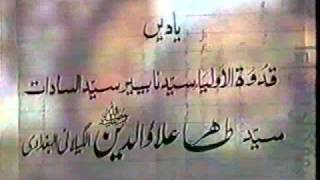 یادیں
قدوۃ الاولیا سیدنا پیر سید السادات
سید طاھا علاؤالدین الگیلانی البغدادی